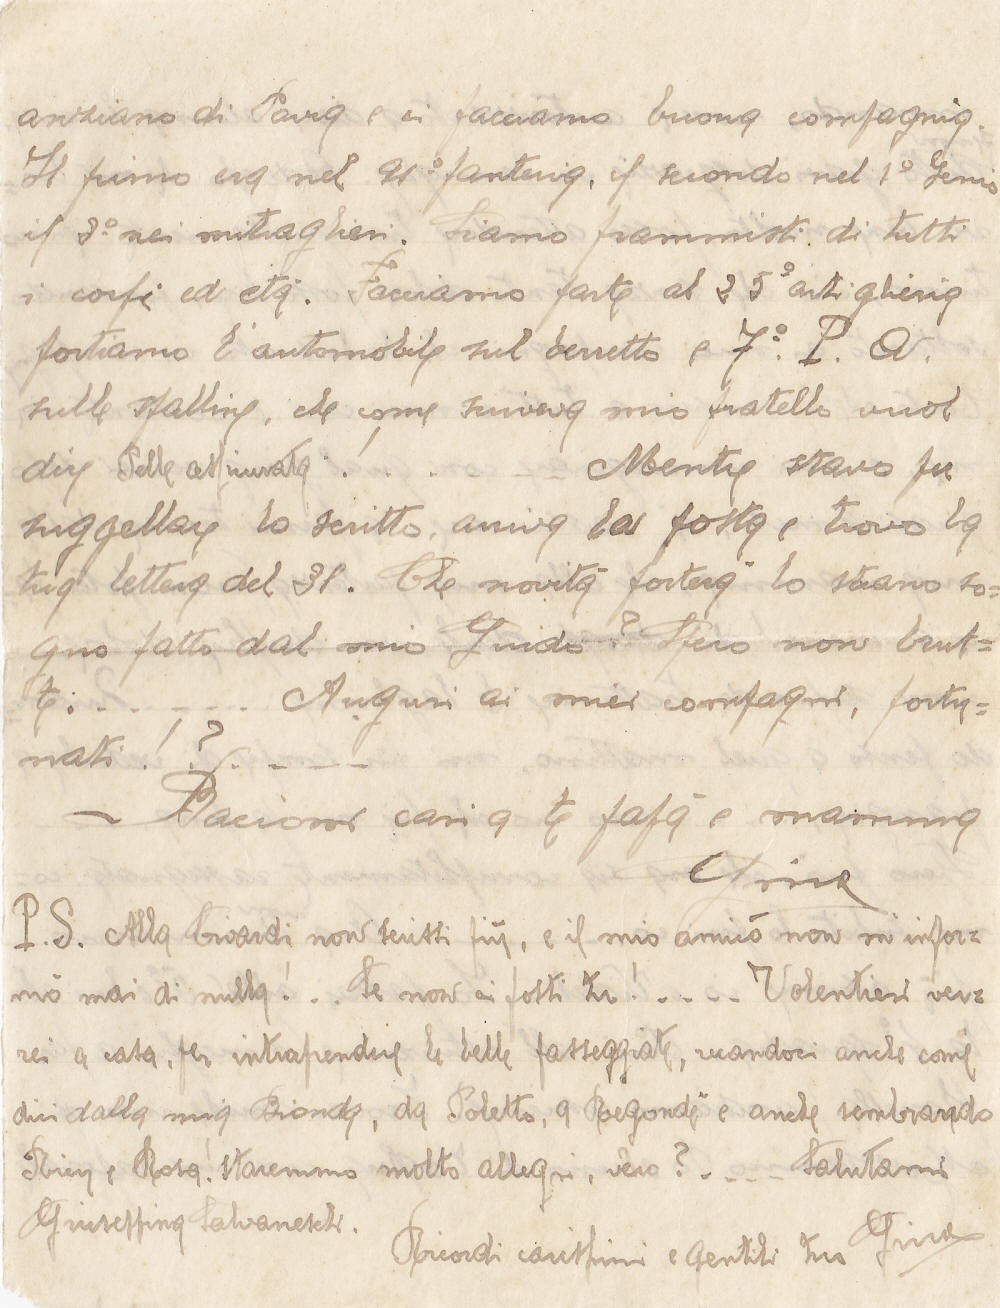 anziano di Pavia e ci facciamo buona compagnia.
Il primo era nel 91° fanteria, il secondo nel 1° Genio
il 3° nei mitraglieri. Siamo frammisti di tutti
i corpi ed età. Facciamo parte al 25° artiglieria
portiamo l'automobile sul berretto e 7°. P. A.
sulle spalline, che come scriveva mio fratello vuol
dire Pelle assicurata! . . . . . Mentre stavo per
suggellare lo scritto, arriva la posta e trovo la
tua lettera del 31. Che novità porterà lo strano so=
gno fatto dal mio Guido? Spero non brut=
te. . . . . . . Auguri ai miei compagni, fortu=
nati! ? . . . . .
~ Bacioni cari a te papà e mamma
Gina
P.S. Alla non scrissi più, e il mio amico non m'infor=
mò mai di nulla! . . Se non ci fosti tu! . . . . . Volentieri ver=
rei a casa, per intraprendere le belle passeggiate, recandoci anche come
dici dalla mia Bionda, da Poletto, a Regondé e anche sembrando
e Rosa! staremmo molto allegri, vero? . . . . . Salutami
Giuseppina Salvaneschi.
Ricordi carissimi e gentili tuo Gina